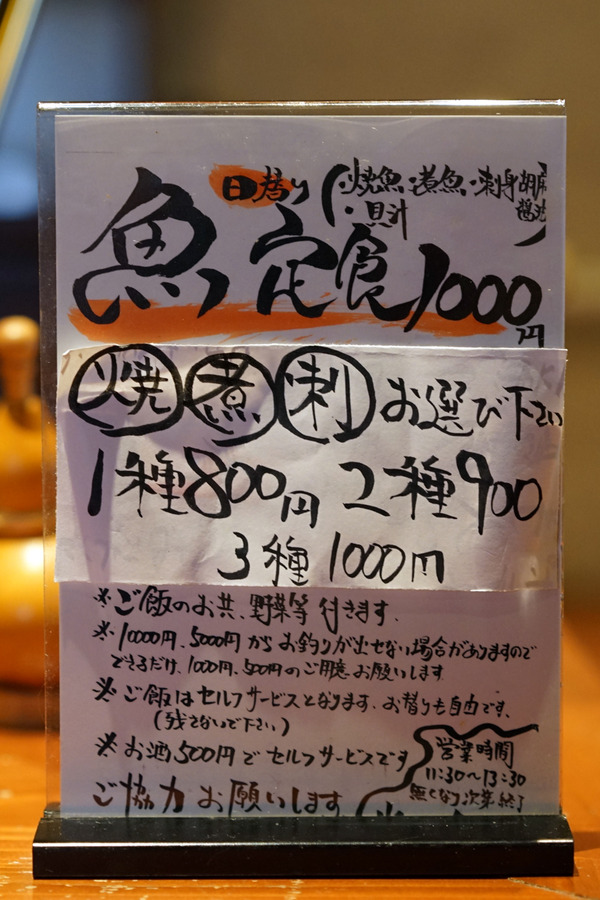 日替り
・焼魚・煮魚・刺身
・貝汁
魚定食1000円
焼 煮 刺 お選び下さい
1種800円 2種900
3種 1000円
※ご飯のお共、野菜等付きます、
※10000円、5000円からお釣りが出せない場合がありますので
できるだけ、1000円、500円のご用意お願いします
※ご飯はセルフサービスとなります、お替りも自由です、
(残さないで下さい)
※お酒500円でセルフサービスです
ご協力お願いします
営業時間
11:30〜13:30
無くなり次第終了